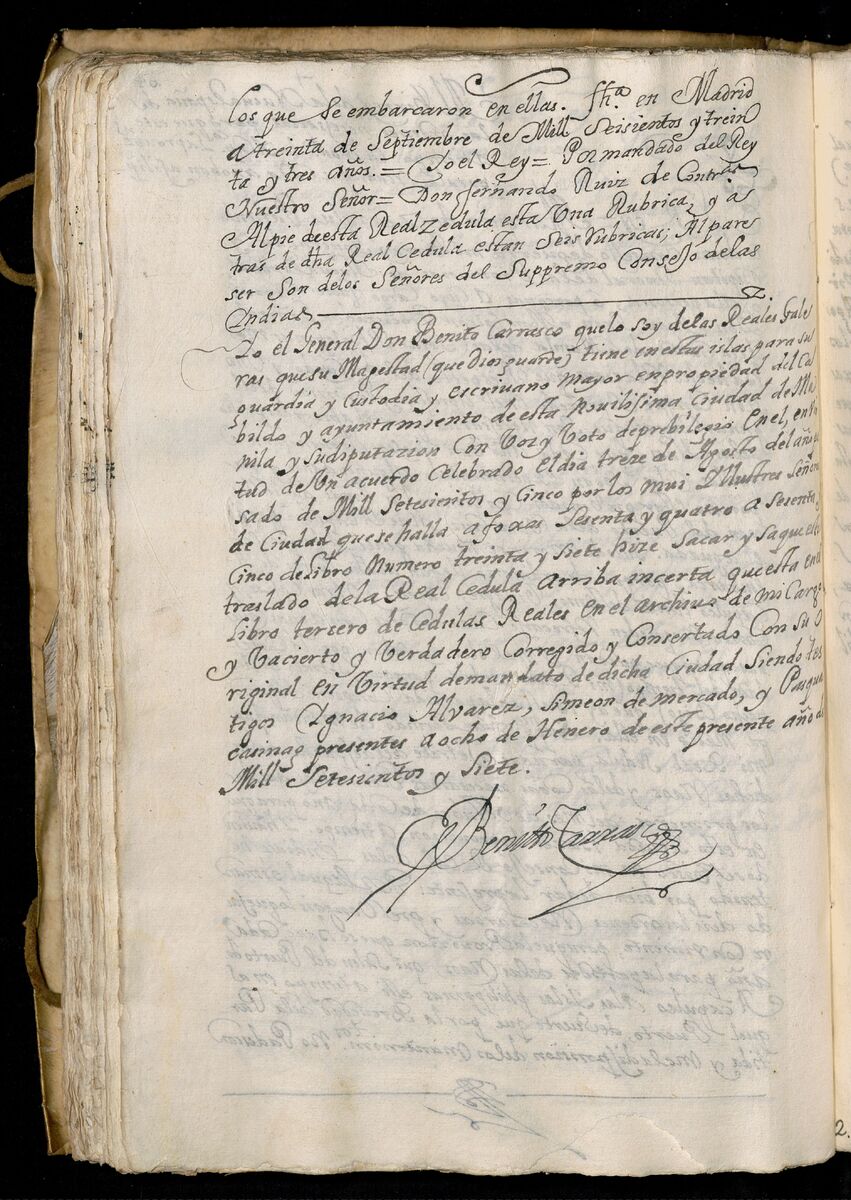 los que se embarcaron en ellas. fha. en Madrid
a treinta de Septiembre de Mill seisientos y trein
ta y tres años. = Yo el Rey = Por mandado del Rey
Nuestro Señor = Don fernando Ruiz de Contras
Al pie de esta Real Zedula esta Una Rubrica, y a
tras de dha Real Cedula estan seis rubricas; Al pares
ser son delos Señores del Suppremo Consejo delas
Indias
Yo el General Don Benito Carrasco que lo soy de las Reales Gale
ras que su Magestad (que Dios guarde) tiene en estas islas para su
guardia y Custodia y escrivano mayor en propiedad del Ca
bildo y ayuntamiento de esta novilissima Ciudad de Ma
nila y su diputazion Con Voz y Voto de prebilegio en el, en Vir
tud de Un acuerdo Celebrado el dia treze de Agosto del año pa
sado de Mill Setesientos y Cinco por los mui Yllustres Señores
de Ciudad que se halla a foxas sesenta y quatro a sesenta y
Cinco de libro Numero treinta y siete hize sacar y saque este
traslado de la Real Cedula arriba incerta que esta en el
libro tersero de Cedulas Reales en el archivo de mi Cargo
y Va cierto y Verdadero Corregido y Consertado Con su O
riginal en Virtud de mandato de dicha Ciudad siendo tes
tigos Ygnacio Alvarez, simeon de mercado, y Pasqual
casinag presentes a ocho de Henero de este presente año de
Mill Setesientos y Siete.
Benito Carrasco
2.